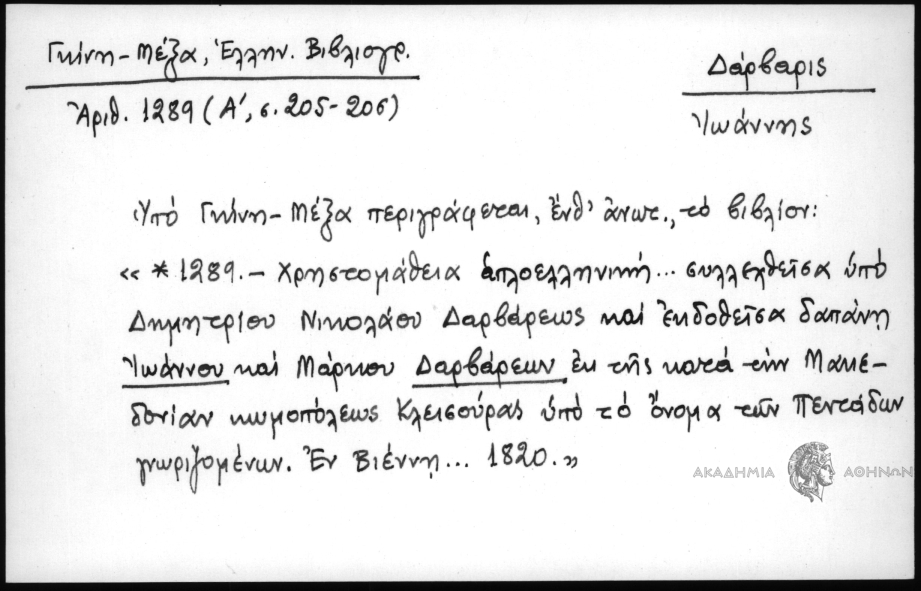 Γκίνη-Μέξα, Ἑλλην. Βιβλιογρ.
Ἀριθ. 1289 (Α´, σ. 205-206)
Δάρβαρις
Ἰωάννης
Ὑπό Γκίνη-Μέξα περιγράφεται, ἔνθ' ἀνωτ., τό βιβλίον:
« * 1289.- Χρηστομάθεια ἁπλοελληνική... συλλεχθεῖσα ὑπό
Δημητρίου Νικολάου Δαρβάρεως καί ἐκδοθεῖσα δαπάνῃ
Ἰωάννου καί Μάρκου Δαρβάρεων ἐκ τῆς κατά τήν Μακε-
δονίαν κωμοπόλεως Κλεισούρας ὑπό τό ὄνομα τῶν Πεντάδων
γνωριζομένων. Ἐν Βιέννῃ... 1820. »
ΑΚΑΔΗΜΙΑ ΑΘΗΝΩΝ